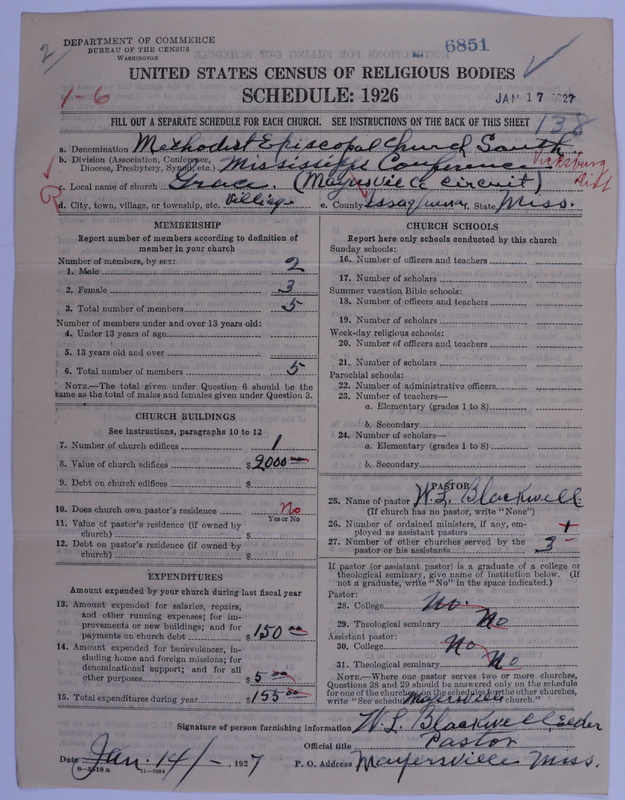 2
DEPARTMENT OF COMMERCE
BUREAU OF THE CENSUS
WASHINGTON
6851
UNITED STATES CENSUS OF RELIGIOUS BODIES
SCHEDULE: 1926
1-6
JAN 17 1927
FILL OUT A SEPARATE SCHEDULE FOR EACH CHURCH. SEE INSTRUCTIONS ON THE BACK OF THIS SHEET
138
a. Denomination Methodist Episcopal Church South
b. Division (Association, Conference, Diocese, Presbytery, Synod, etc.) Mississippi Conference Vicksburg Dist
c. Local name of church Grace. (Mayersville Circuit)
R
d. City, town, village, or township, etc. Village e. County Issaquena f. State Miss.
MEMBERSHIP
Report number of members according to definition of
member in your church
Number of members, by sex:
1. Male 2
2. Female 3
3. Total number of members 5
Number of members under and over 13 years old:
4. Under 13 years of age
5. 13 years old and over
6. Total number of members 5
NOTE.—The total given under Question 6 should be the
same as the total of males and females given under Question 3.
CHURCH BUILDINGS
See instructions, paragraphs 10 to 12
7. Number of church edifices 1
8. Value of church edifices $2000
9. Debt on church edifices $
10. Does church own pastor's residence No
Yes or No
11. Value of pastor's residence (if owned by
church) $
12. Debt on pastor's residence (if owned by
church) $
EXPENDITURES
Amount expended by your church during last fiscal year
13. Amount expended for salaries, repairs,
and other running expenses; for im-
provements or new buildings; and for
payments on church debt $150 00
14. Amount expended for benevolences, in-
cluding home and foreign missions; for
denominational support; and for all
other purposes $5 00
15. Total expenditures during year $155 00
CHURCH SCHOOLS
Report here only schools conducted by this church
Sunday schools:
16. Number of officers and teachers
17. Number of scholars
Summer vacation Bible schools:
18. Number of officers and teachers
19. Number of scholars
Week-day religious schools:
20. Number of officers and teachers
21. Number of scholars
Parochial schools:
22. Number of administrative officers
23. Number of teachers—
a. Elementary (grades 1 to 8)
b. Secondary
24. Number of scholars—
a. Elementary (grades 1 to 8)
b. Secondary
PASTOR
25. Name of pastor W. L. Blackwell
(If church has no pastor, write "None")
26. Number of ordained ministers, if any, em-
ployed as assistant pastors
27. Number of other churches served by the
pastor or his assistants 3
If pastor (or assistant pastor) is a graduate of a college or
theological seminary, give name of institution below. (If
not a graduate, write "No" in the space indicated.)
Pastor:
28. College No.
29. Theological seminary No
Assistant pastor:
30. College No
31. Theological seminary No
NOTE.—Where one pastor serves two or more churches,
Questions 28 and 29 should be answered only on the schedule
for one of the churches; on the schedules for the other churches,
write "See schedule Mayersville church."
Signature of person furnishing information W. L. Blackwell, Elder
Official title Pastor
Date Jan. 14/-, 1927 P. O. Address Mayersville Miss.
8-5518 a 11-9264